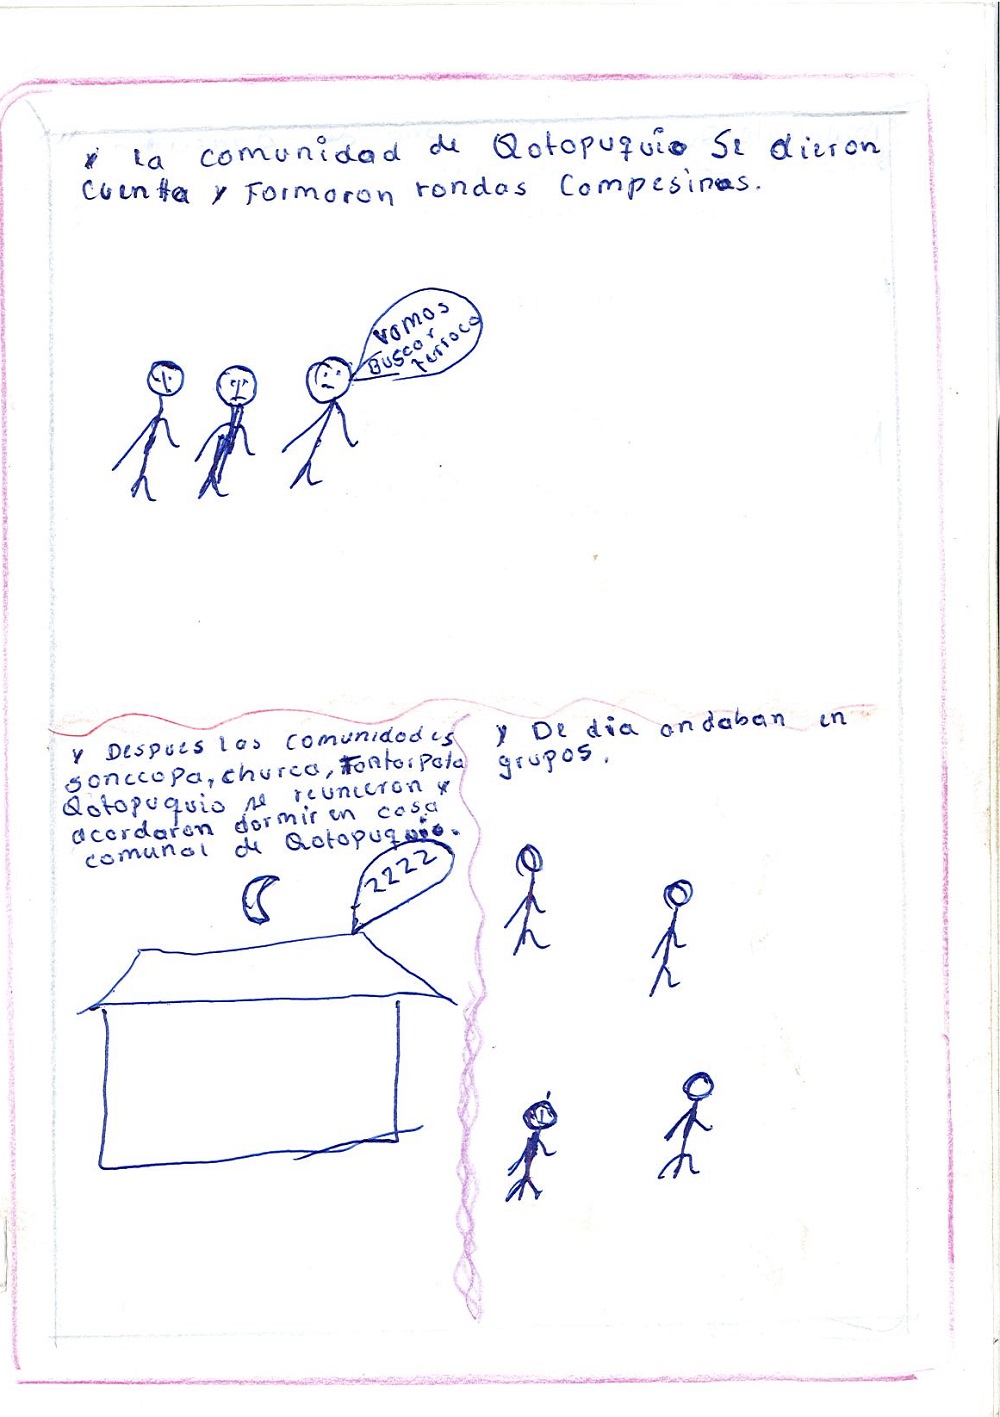 y la comunidad de Qotopuquio Se dieron
cuenta y Formaron rondas Campesinas.
vamos
Buscar
terroco
y Despues las comunidades
sonccopa, churca, Tantarpata
Qotopuquio se reunieron y
acordaron dormir en casa
comunal de Qotopuquio.
zzzz
y De dia andaban en
grupos.